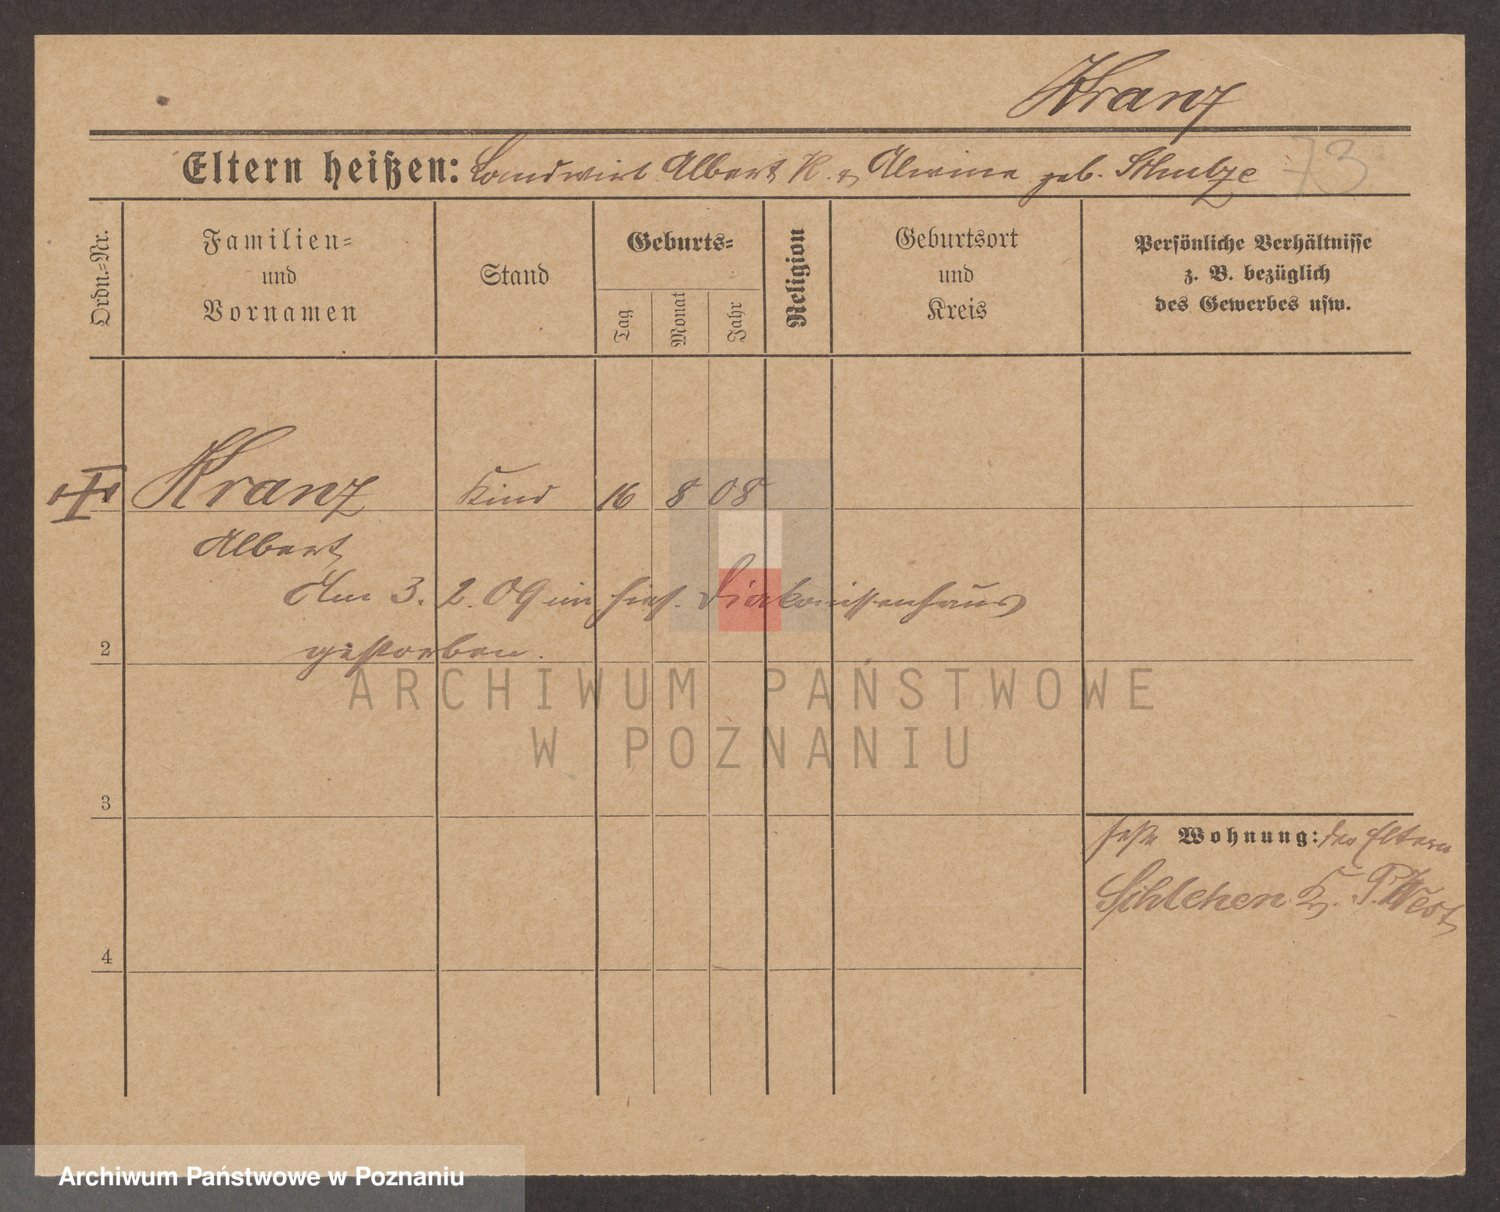 Kranz
Eltern heißen: Landwirt Albert K. u. Alwine geb. Schulze
73
Ordn.=Nr.
Familien=
und
Vornamen
Stand
Geburts=
Tag
Monat
Jahr
Religion
Geburtsort
und
Kreis
Persönliche Verhältnisse
z. B. bezüglich
des Gewerbes usw.
Kranz Kind 16 8 08
Albert
Am 3. 2. 09 im hies. Diakonissenhaus
gestorben.
2
ARCHIWUM PAŃSTWOWE
W POZNANIU
3
feste Wohnung: der Eltern
Schlehen K. P. West
4
Archiwum Państwowe w Poznaniu